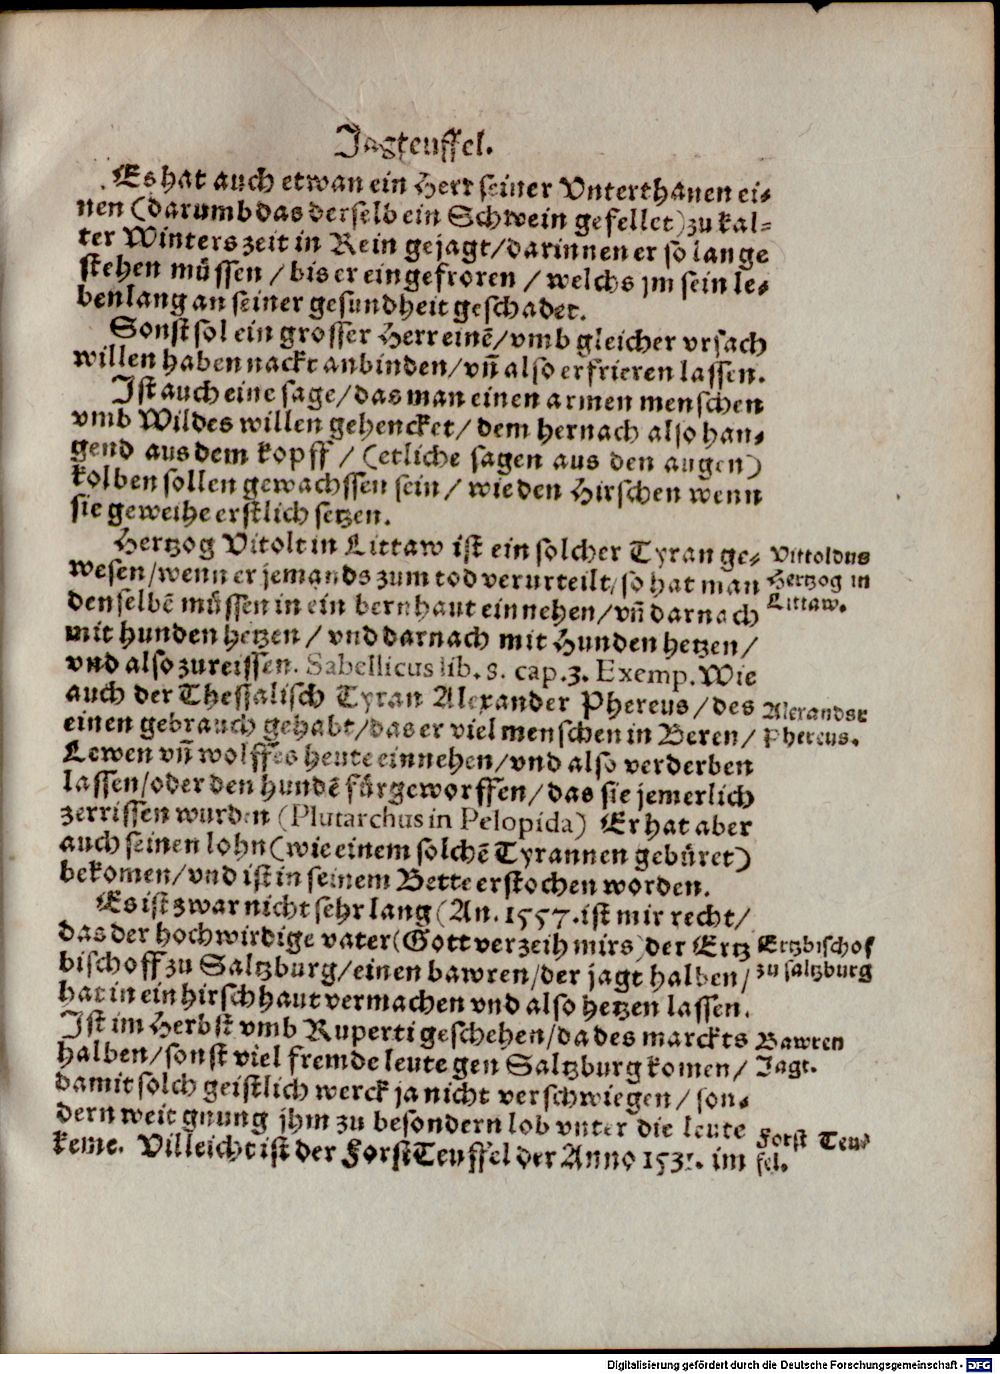 Jagteuffel.
Es hat auch etwan ein Herr seiner Vnterthanen ei-
nen (darumb das derselb ein Schwein gefellet) zu kal-
ter Winters zeit in Rein gejagt / darinnen er so lange
stehen müssen / bis er eingefroren / welchs jm sein le-
benlang an seiner gesundheit geschadet.
Sonst sol ein grosser Herr einē / vmb gleicher vrsach
willen haben nackt anbinden / vn̄ also erfrieren lassen.
Ist auch eine sage / das man einen armen menschen
vmb Wildes willen gehencket / dem hernach also han-
gend aus dem kopff / (etliche sagen aus den augen)
kolben sollen gewachssen sein / wie den Hirschen wenn
sie geweihe erstlich setzen.
Hertzog Vitolt in Littaw ist ein solcher Tyran ge-
wesen / wenn er jemands zum tod verurteilt / so hat man
denselbē müssen in ein bernhaut einnehen / vn̄ darnach
mit hunden hetzen / vnd darnach mit Hunden hetzen /
vnd also zureissen. Sabellicus lib. 8. cap. 3. Exemp. Wie
auch der Thessalisch Tyran Alexander Phereus / des
einen gebrauch gehabt / das er viel menschen in Beren /
Lewen vn̄ wolffes heute einnehen / vnd also verderben
lassen / oder den hundē fürgeworffen / das sie jemerlich
zerrissen wurden (Plutarchus in Pelopida) Er hat aber
auch seinen lohn (wie einem solchē Tyrannen gebüret)
bekomen / vnd ist in seinem Bette erstochen worden.
Es ist zwar nicht sehr lang (An. 1557. ist mir recht /
das der hochwirdige vater (Gott verzeih mirs) der Ertz
bischoff zu Saltzburg / einen bawren / der jagt halben /
hat in ein hirschhaut vermachen vnd also hetzen lassen.
Ist im Herbst vmb Ruperti geschehen / da des marckts
halben / sonst viel fremde leute gen Saltzburg komen /
damit solch geistlich werck ja nicht verschwiegen / son-
dern weit gnung jhm zu besondern lob vnter die leute
keme. Villeicht ist der ForstTeuffel der Anno im
Vittoldus
Hertzog in
Littaw.
Alexander
Phereus.
Ertzbischof
zu saltzburg
Bawren
Jagt.
Forst Teu-
fel.
Digitalisierung gefördert durch die Deutsche Forschungsgemeinschaft - DFG